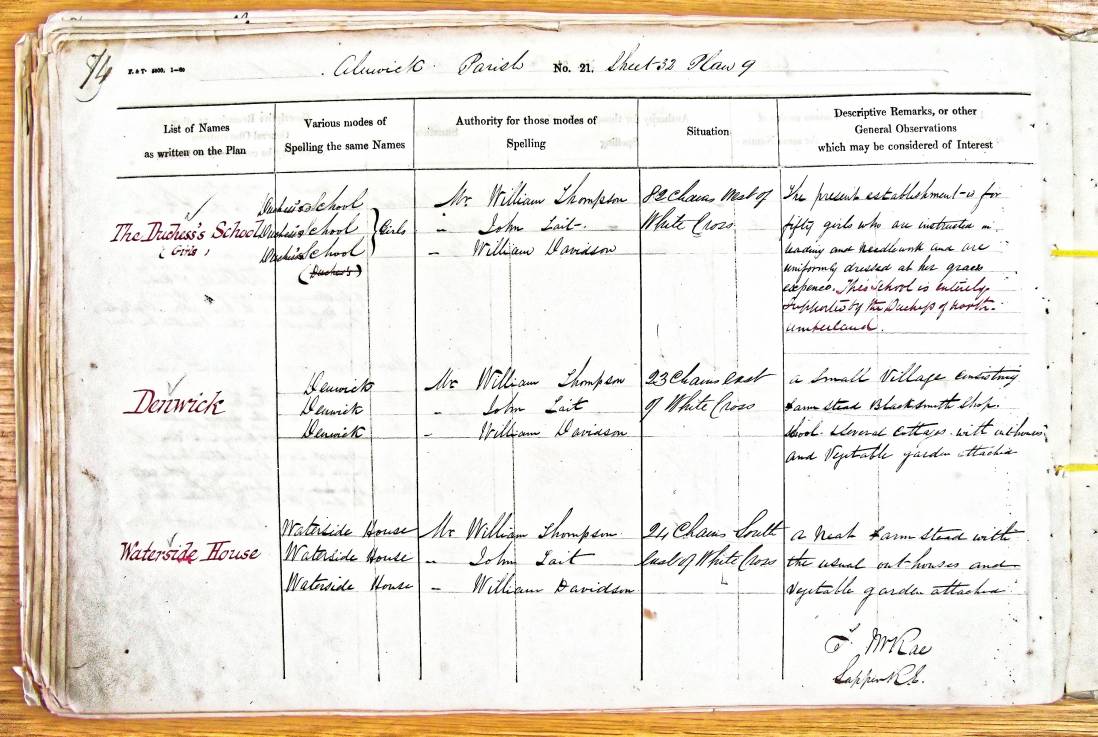 74
Alnwick Parish No. 21. Sheet 32 Plan 9
List of Names
as written on the Plan
Various modes of
Spelling the same Names
Authority for those modes of
Spelling
Situation
Descriptive Remarks, or other
General Observations
which may be considered of Interest
The Duchess's School
(Girls)
Duchess's School
Duchess's School } Girls
Duchess's School
(Duchess's)
Mr William Thompson
" John Tait
" William Davidson
82 Chains West of
White Cross
The present establishment is for
fifty girls who are instructed in
reading and needlework and are
uniformly dressed at her graces
expence. This School is entirely
supported by the Duchess of North-
umberland.
Denwick
Denwick
Denwick
Denwick
Mr William Thompson
" John Tait
" William Davidson
23 Chains east
of White Cross
a Small Village consisting
Farm stead Blacksmith Shop.
School. Several Cottages with outhouses
and Vegetable garden attached
Waterside House
Waterside House
Waterside House
Waterside House
Mr William Thompson
" John Tait
" William Davidson
24 Chains South
East of White Cross
a Neat Farm stead with
the usual out houses and
Vegetable garden attached
T McRae
Sapper R.E.